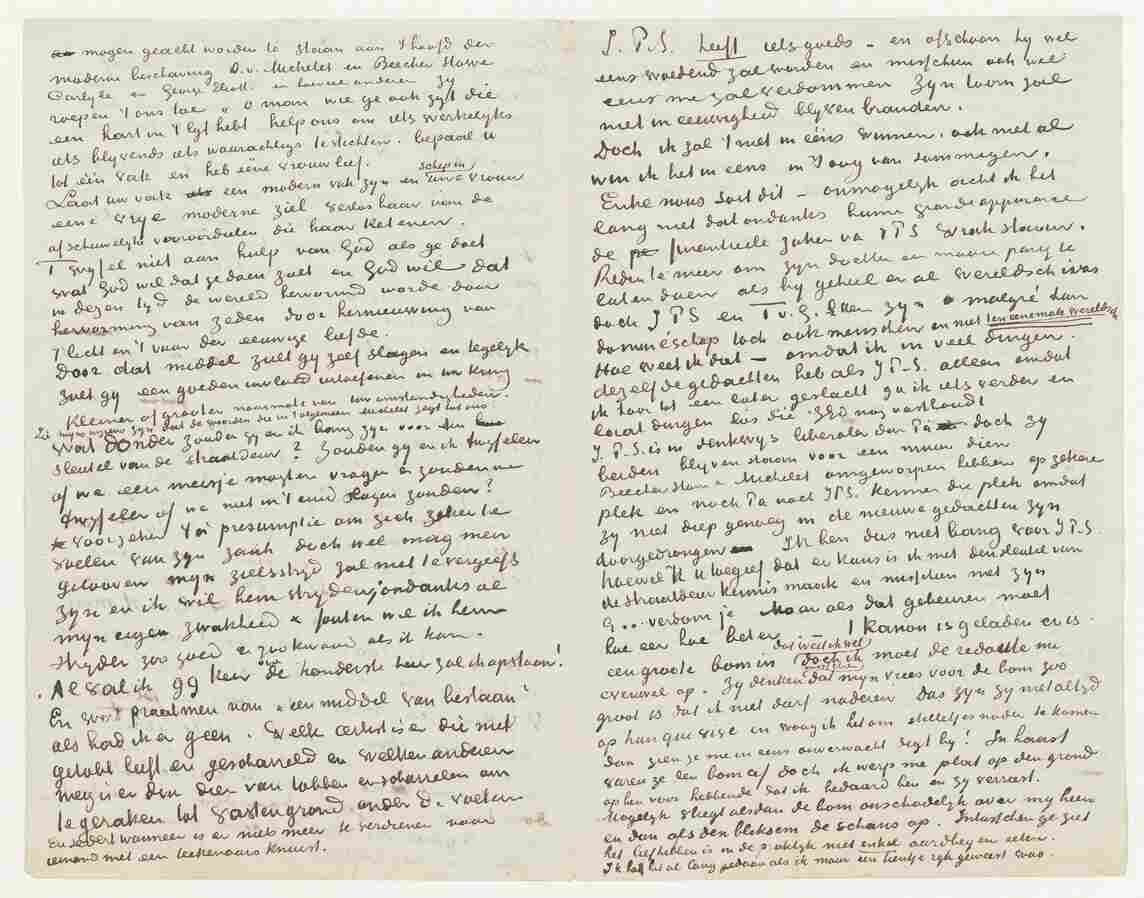 mogen geacht worden te staan aan 't hoofd der
moderne beschaving D.v. Michelet en Beecher Stowe
Carlyle en George Eliott en hoevele anderen zy
roepen 't ons toe „o man wie ge ook zyt die
een hart in 't lyf hebt help ons om iets werkelyks
iets blyvends iets waarachtigs te stichten. bepaal u
tot één vak en heb eéne vrouw lief.
Laat uw vak een modern vak zyn en schep in uwe vrouw
eene vrye moderne ziel verlos haar van de
afschuwelyke vooroordelen die haar ketenen.
Twyfel niet aan hulp van God als ge doet
wat God wil dat ge doen zult en God wil dat
in dezen tyd de wereld hervormd worde door
hervorming van zeden door hernieuwing van
't licht en 't vuur der eeuwige liefde.
Door dat middel zult gy zelf slagen en tegelyk
zult gy een goeden invloed uitoefenen in uw kring
kleiner of grooter naarmate van uw omstandigheden.
dat de woorden die in 't algemeen enkelen zegt het ons
Wat donder zouden gy en ik bang zyn voor den
sleutel van de straatdeur? Zouden gy en ik twyfelen
of we een meisje mogten vragen & zouden we
twyfelen of we niet in 't eind slagen zouden?
voorzeker 't is presumptie om zich zeker te
voelen van zyn zaak doch wel mag men
gelooven myn zielsstryd zal niet te vergeefs
zyn en ik wil hem stryden, ondanks al
myn eigen zwakheid & fouten wil ik hem
stryden zoo goed & zoo kwaad als ik kan.
Al val ik 99 keer de honderste keer zal ik opstaan!
En wat praat men van „een middel van bestaan"
als had ik er geen. Welk artist is er die niet
getobt heeft en gescharreld en welken anderen
weg is er dan dien van tobben en scharrelen om
te geraken tot vasten grond onder de voeten
En sedert wanneer is er niets meer te verdienen voor
iemand met een teekenaars knuist.
J.P.S. heeft iets goeds – en ofschoon hy wel
eens woedend zal worden en misschien ook wel
eens me zal verdommen Zyn toorn zal
niet in eeuwigheid blyven branden.
Doch ik zal 't niet in eéns winnen. ook niet al
win ik het in eens in 't oog van sommigen.
Entre nous soit dit – onmogelyk acht ik het
lang niet dat ondanks hunne grande apparence
de financieele zaken van JPS wrak staan.
Reden te meer om zyn dochter en maar party te
laten doen als hy geheel en al wereldsch was
doch JPS en T.v.G. zyn malgré hun
domineéschap toch ook menschen en niet ten eenemale wereldsch
Hoe weet ik dat – omdat ik in veel dingen
dezelfde gedachten heb als J.P.S. alleen omdat
ik hoor tot een later geslacht ga ik iets verder en
laat dingen los die ZEd nog vasthoudt
J.P.S. is in denkwys liberaler dan Pa doch zy
beiden blyven staan voor een muur dien
Beecher Stowe & Michelet omgeworpen hebben op zekere
plek en noch Pa noch JPS. kennen die plek omdat
zy niet diep genoeg in de nieuwe gedachten zyn
doorgedrongen Ik ben dus niet bang voor J.P.S.
hoewel ik u toegeef dat er kans is ik met den sleutel van
de straatdeur kennis maak en misschien met zyn
G.. verdom je Maar als dat gebeuren moet
hoe eer hoe beter. 't Kanon is geladen er is
een groote bom in dat weet ik wel doch ik moet de redoute nu
evenwel op. Zy denken dat myn vrees voor de bom zoo
groot is dat ik niet durf naderen Das zyn zy niet altyd
op hun qui vive en waag ik het om stilletjes nader te komen
dan zien ze me in eens onverwacht digt by! In haast
vuren ze een bom af doch ik werp me plat op den grond
op hen voor hebbende dat ik bedaard ben en zy verrast.
Mogelyk vliegt alsdan de bom onschadelyk over my heen
en dan als den bliksem de schans op. Intusschen ge ziet
het liefhebben is in de praktyk niet enkel aardbeyen eeten.
Ik had het al lang gedaan als ik maar een tientje ryk geweest was.